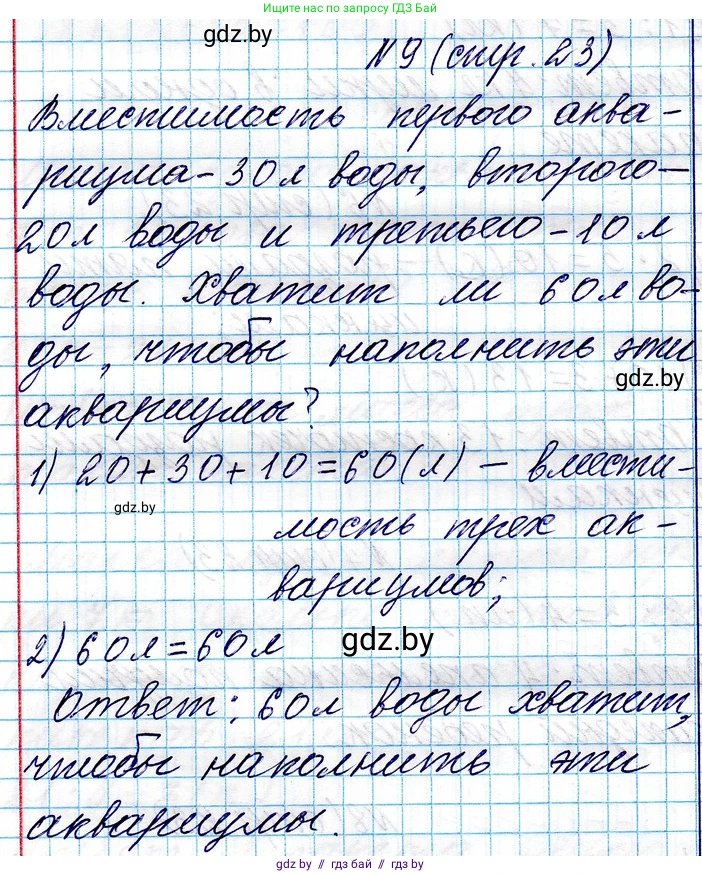 Ищите нас по запросу ГДЗ Бай
gdz.by
№9 (стр. 23)
Вместимость первого аква-
риума - 30 л воды, второго -
20 л воды и третьего - 10 л
воды. Хватит ли 60 л во-
ды, чтобы наполнить эти
gdz.by
аквариумы?
1) 20 + 30 + 10 = 60 (л) - вмести-
gdz.by
мость трех ак-
вариумов;
2) 60 л = 60 л
gdz.by
Ответ: 60 л воды хватит,
чтобы наполнить эти
аквариумы.
gdz.by // гдз бай // gdz.by